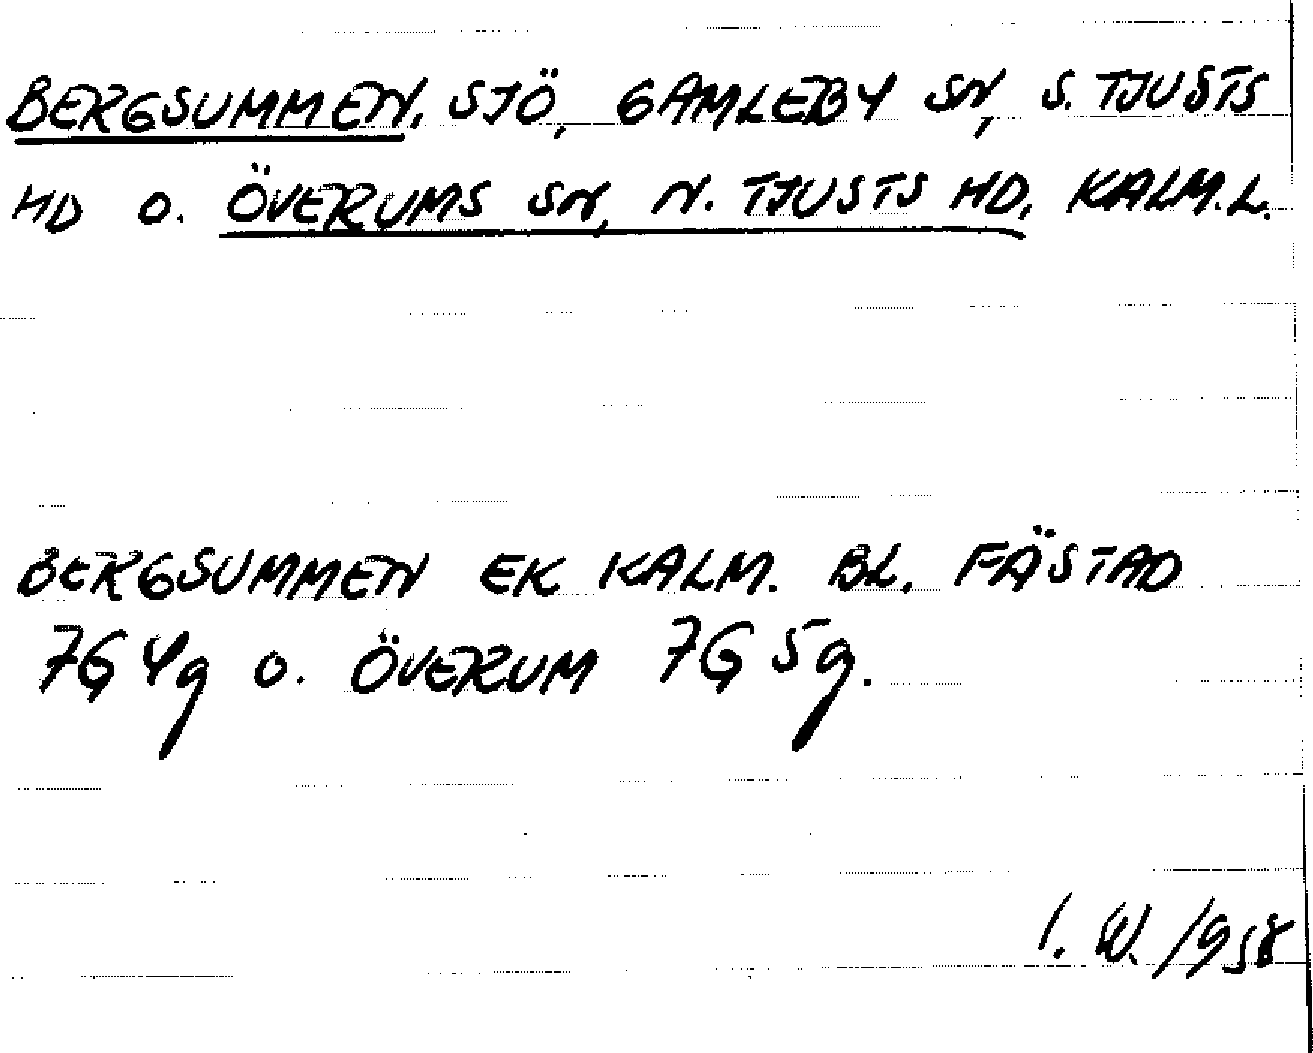 BERGSUMMEN, SJÖ, GAMLEBY SN, S. TJUSTS
HD O. ÖVERUMS SN, N. TJUSTS HD, KALM.L.
BERGSUMMEN EK KALM. BL. FÄSTAD
7G4g O. ÖVERUM 7G5g.
I. W. 1958